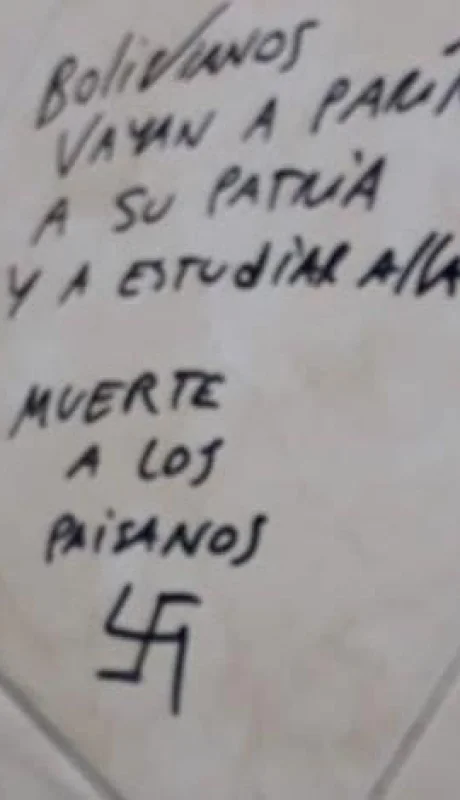 Bolivianos
VAYAN A PARIR
A SU PATRIA
Y A ESTUdiAR AllA
MUERTE
A LOS
PAiSANOS